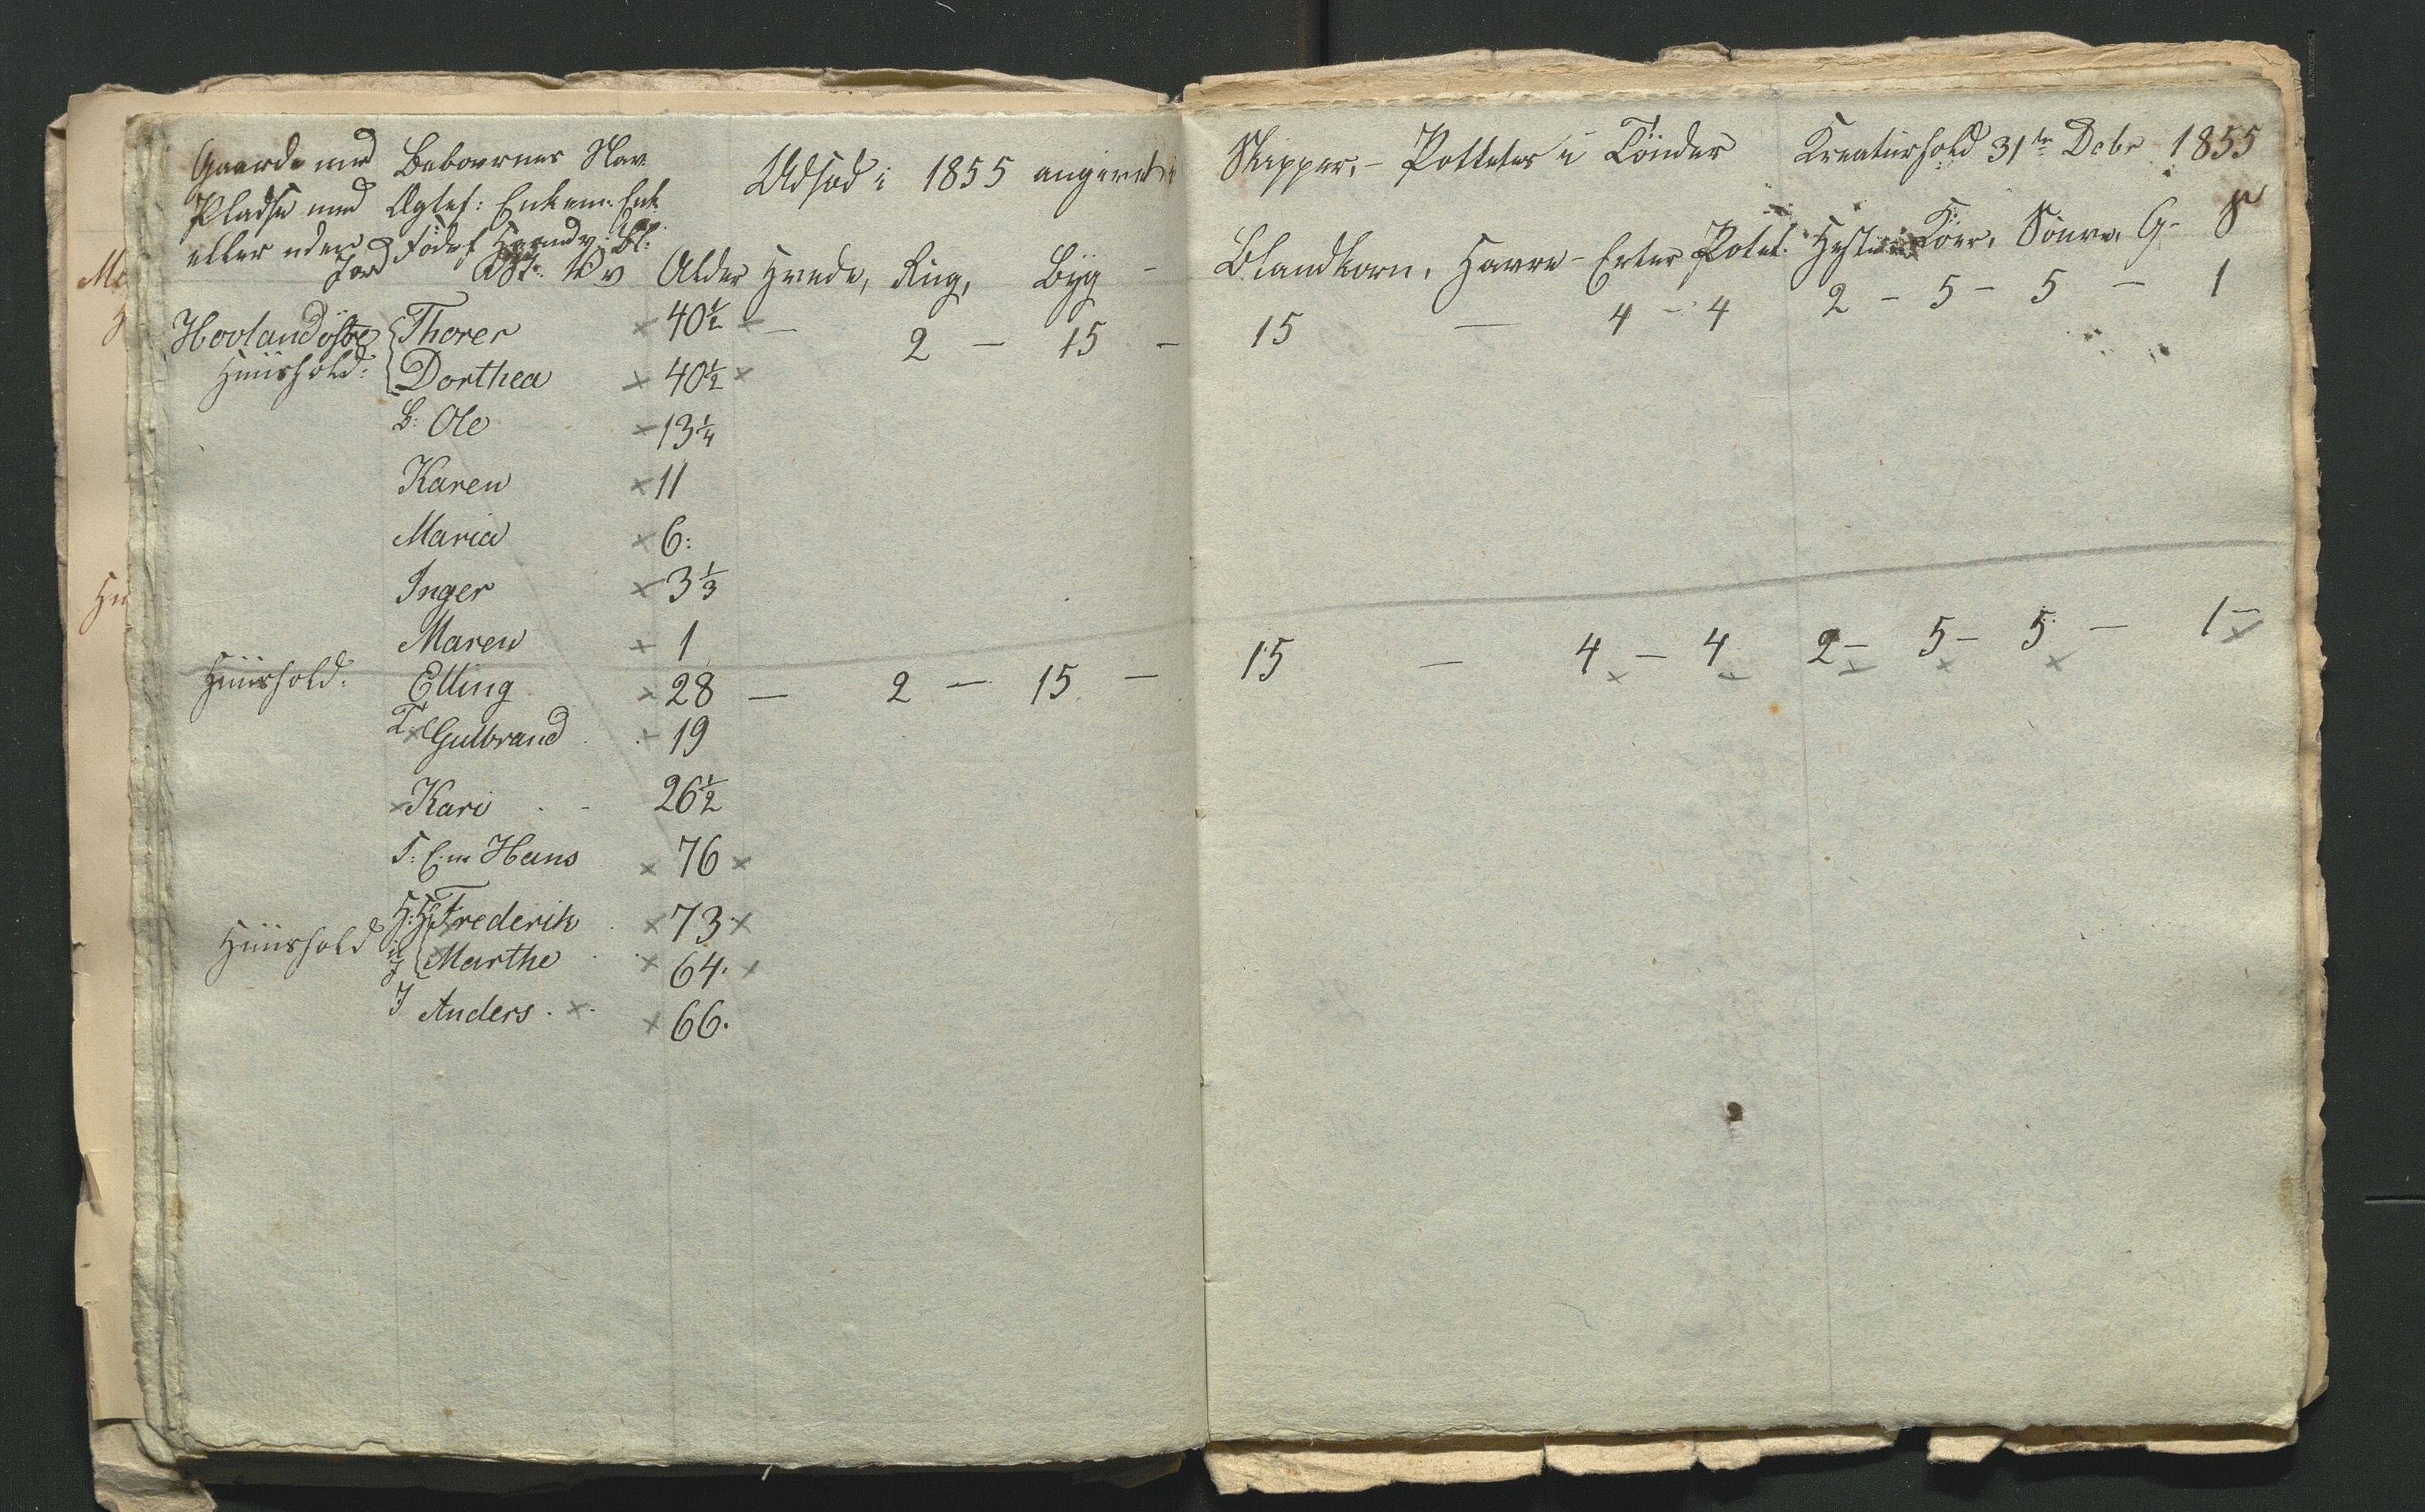 Gaarde med Beboernes Nav
Pladse med Ægtef: Enkem: Enk
eller uden Födesf Haandv: Bl:
Jord
Udsæd i 1855 angivet i Skjepper, - Potteter i Tönder Kreaturhold 31te Debr 1855
Alder Hvede, Rug, Byg - Blandkorn, Havre - Erter Potet. Heste Köer, Souer, G- S
Hovland östre Thorer 40½ — 2 — 15 — 15 — 4 - 4 2 - 5 - 5 — 1
Huushold: Dorthea 40½
B: Ole 13¼
Karen 11
Maria 6:
Inger 3⅓
Maren 1
Huushold: Elling 28 — 2 — 15 — 15 — 4 — 4 2 - 5 - 5 — 1 -
T: Gulbrand 19
Kari 26½
F: E:m Hans 76
Huushold Frederik 73
Marthe 64.
Anders 66.
Ma
Hu